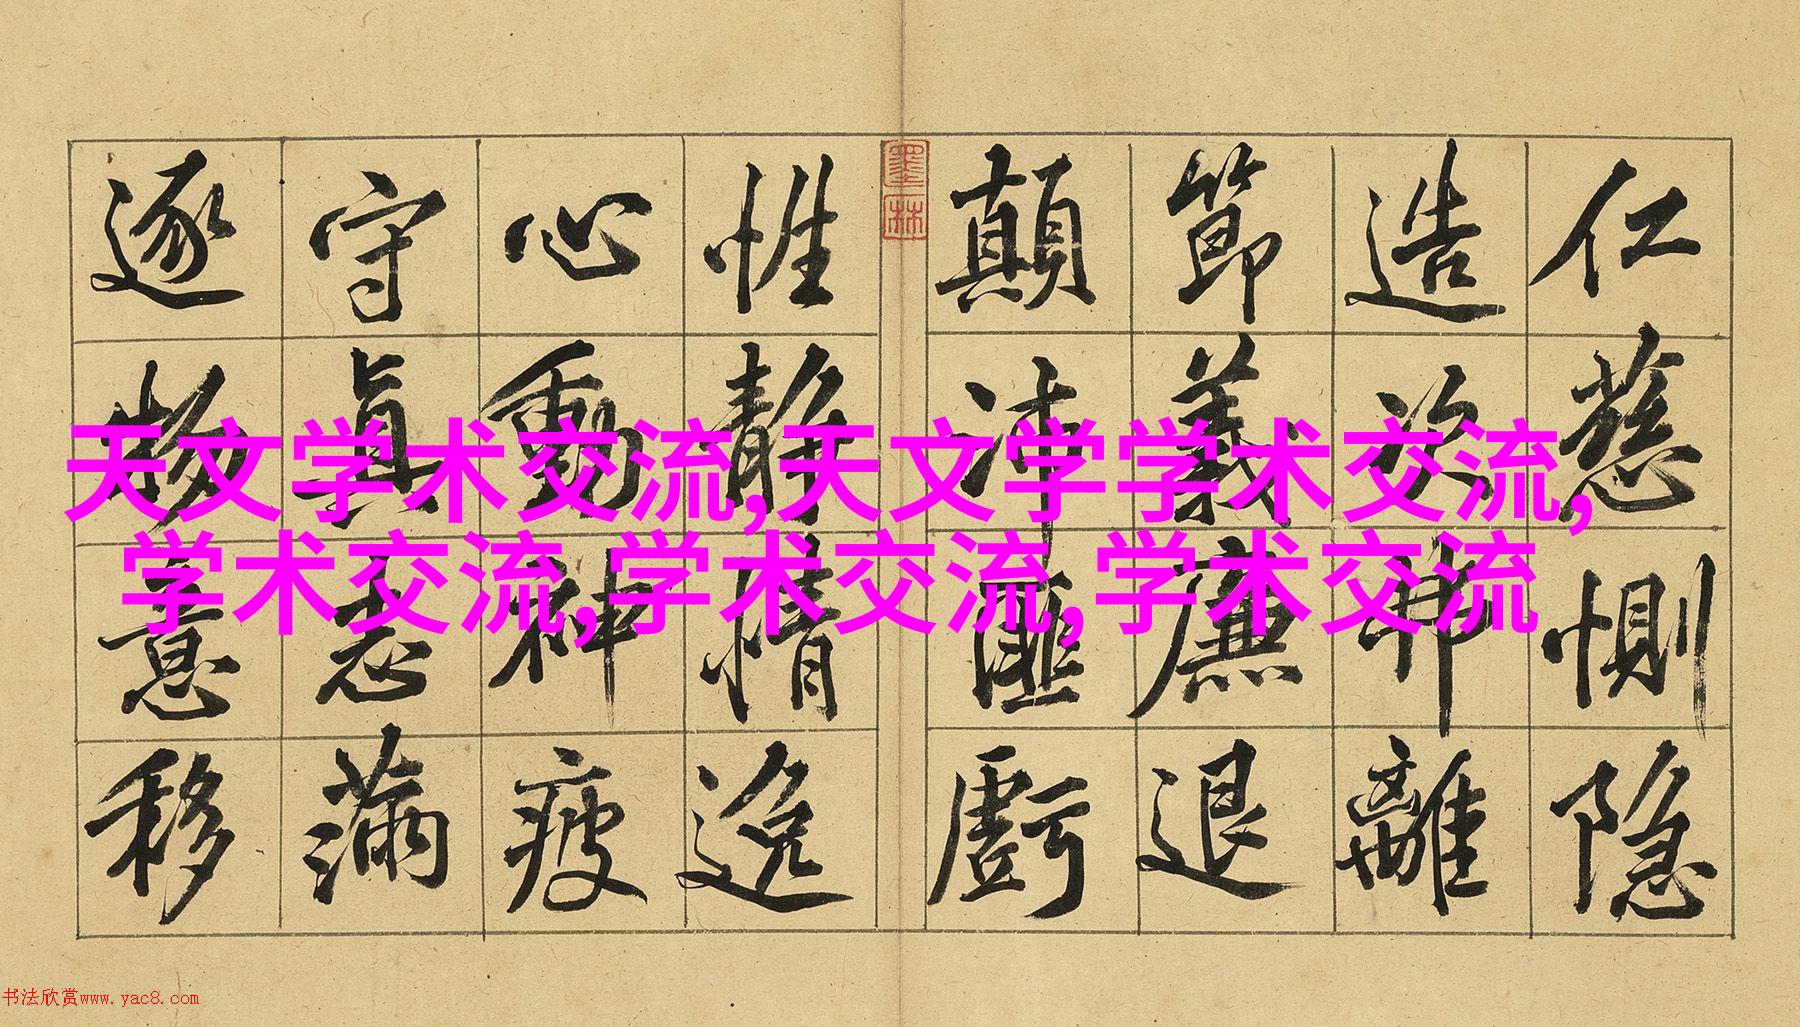 天文学术交流,天文学学术交流,
学术交流,学术交流,学术交流
仁慈惻隐
造次弗離
節義廉退
顛沛匪虧
墨林
性静情逸
心動神疲
守真志滿
逐物意移
书法欣赏www.yac8.com